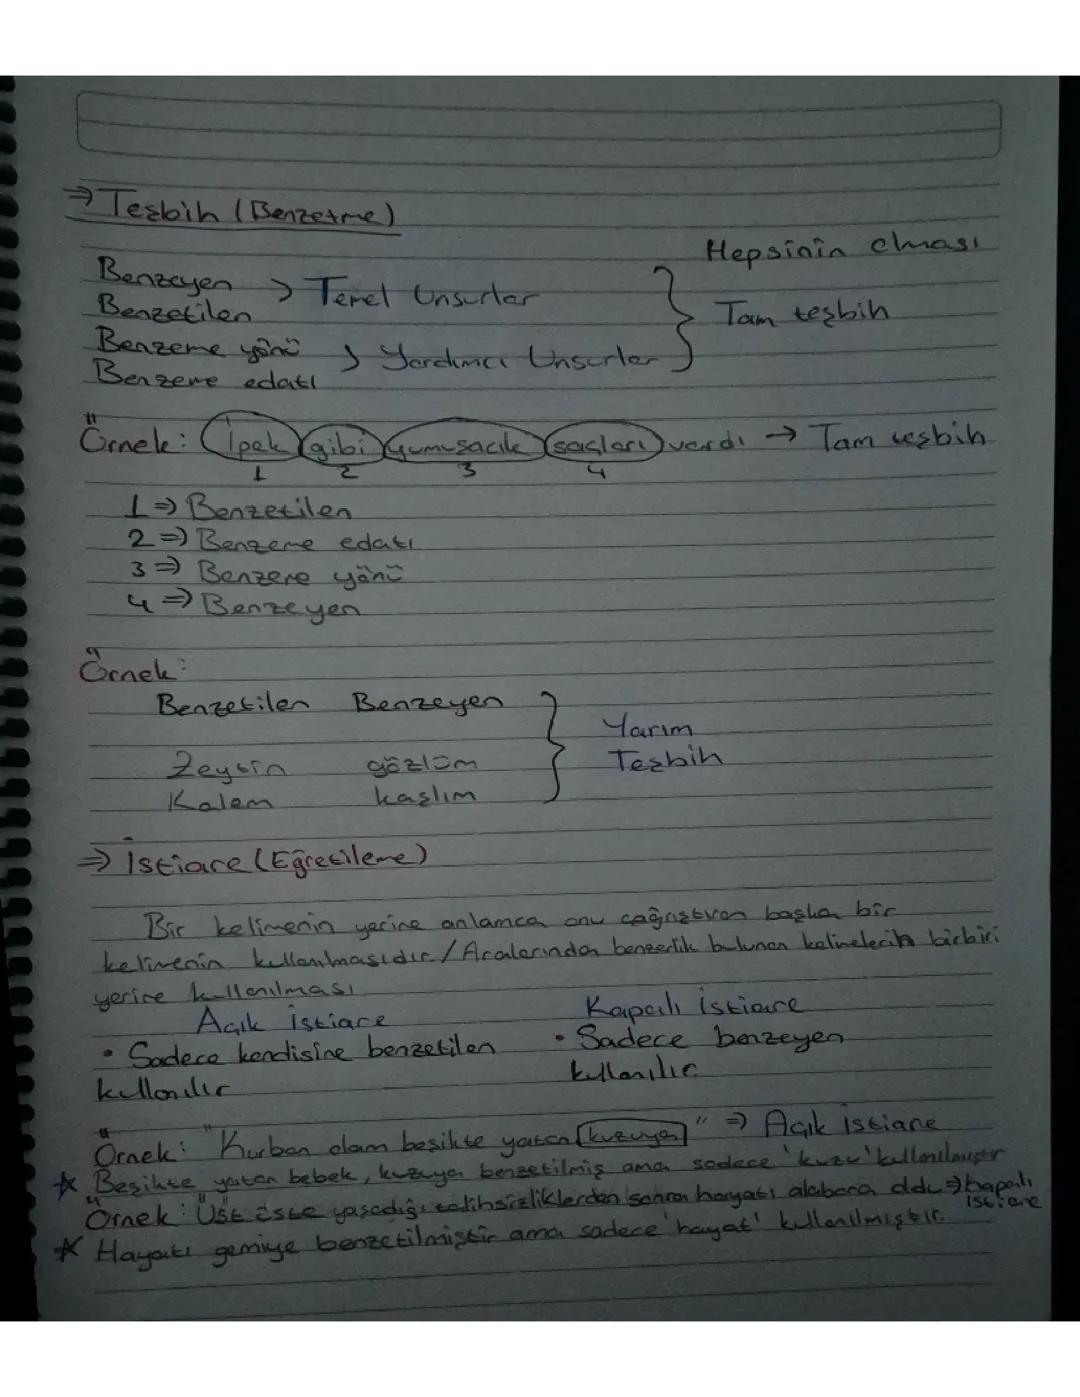 ⇒ Teşbih (Benzetme)
Hepsinin olması
Benzeyen > Temel Unsurlar
Benzetilen
Tam teşbih
Benzeme yönü > Yardımcı Unsurlar
Benzeme edatı
Örnek: İpek gibi yumuşacık saçları vardı → Tam teşbih
1 2 3 4
1 ⇒ Benzetilen
2 ⇒ Benzeme edatı
3 ⇒ Benzeme yönü
4 ⇒ Benzeyen
Örnek:
Benzetilen Benzeyen
Yarım
Zeytin gözlüm
Teşbih
Kalem kaşlım
⇒ İstiare (Eğretileme)
Bir kelimenin yerine anlamca onu çağrıştıran başka bir
kelimenin kullanılmasıdır. / Aralarından benzerlik bulunan kelimelerin birbiri
yerine kullanılması
Açık istiare
Kapalı istiare
• Sadece kendisine benzetilen
kullanılır
• Sadece benzeyen
kullanılır.
Örnek: "Kurban olam beşikte yatan kuzuya" ⇒ Açık istiare
★ Beşikte yatan bebek, kuzuya benzetilmiş ama sadece 'kuzu' kullanılmıştır
Örnek: Üst üste yaşadığı talihsizliklerden sonra hayatı alabora oldu ⇒ kapalı istiare
★ Hayatı gemiye benzetilmiştir ama sadece 'hayat' kullanılmıştır.